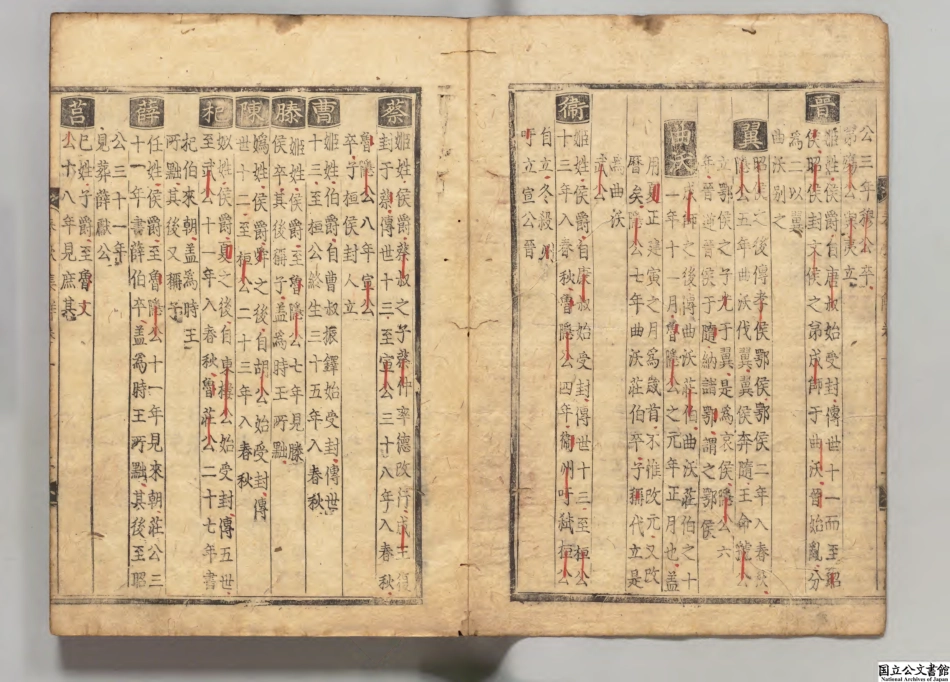 公三年穆公卒
弟殤公與夷立
晉
姬姓侯爵自唐叔始受封傳世十一而至昭
侯昭侯封文侯之弟成師于曲沃晉始亂分
為二以翼
曲沃別之
翼
昭侯之後傳孝侯鄂侯鄂侯二年入春秋
隱公五年曲沃伐翼翼侯奔隨王命虢公
立鄂侯之子光于翼是為哀侯隱公六
年晉逆晉侯于隨納諸鄂謂之鄂侯
曲沃
成師之後傳曲沃莊伯曲沃莊伯之十
一年十一月魯隱公之元年正月也盖
用夏正建寅之月為歲首不惟改元又改
曆矣隱公七年曲沃莊伯卒子稱代立是
為曲沃
武公
衛
姬姓侯爵自康叔始受封傳世十三至桓公
十三年入春秋魯隱公四年衛州吁弑桓公
自立冬殺州
吁立宣公晉
蔡
姬姓侯爵蔡叔之子蔡仲率德改行成王復
封于蔡傳世十三至宣公三十八年入春秋
魯隱公八年宣公
卒子桓侯封人立
曹
姬姓伯爵自曹叔振鐸始受封傳世
十三至桓公終生三十五年入春秋
滕
姬姓侯爵至魯隱公七年見滕
侯卒其後稱子盖為時王所黜
陳
媯姓侯爵舜之後自胡公始受封傳
世十二至桓公二十三年入春秋
杞
姒姓侯爵夏之後自東樓公始受封傳五世
至武公十一年入春秋魯莊公二十七年書
杞伯來朝盖為時王
所黜其後又稱子
薛
任姓侯爵至魯隱公十一年見來朝莊公三
十一年書薛伯卒盖為時王所黜其後至昭
公三十一年
見葬薛獻公
莒
己姓子爵至魯文
公十八年見庶其
国立公文書館
National Archives of Japan